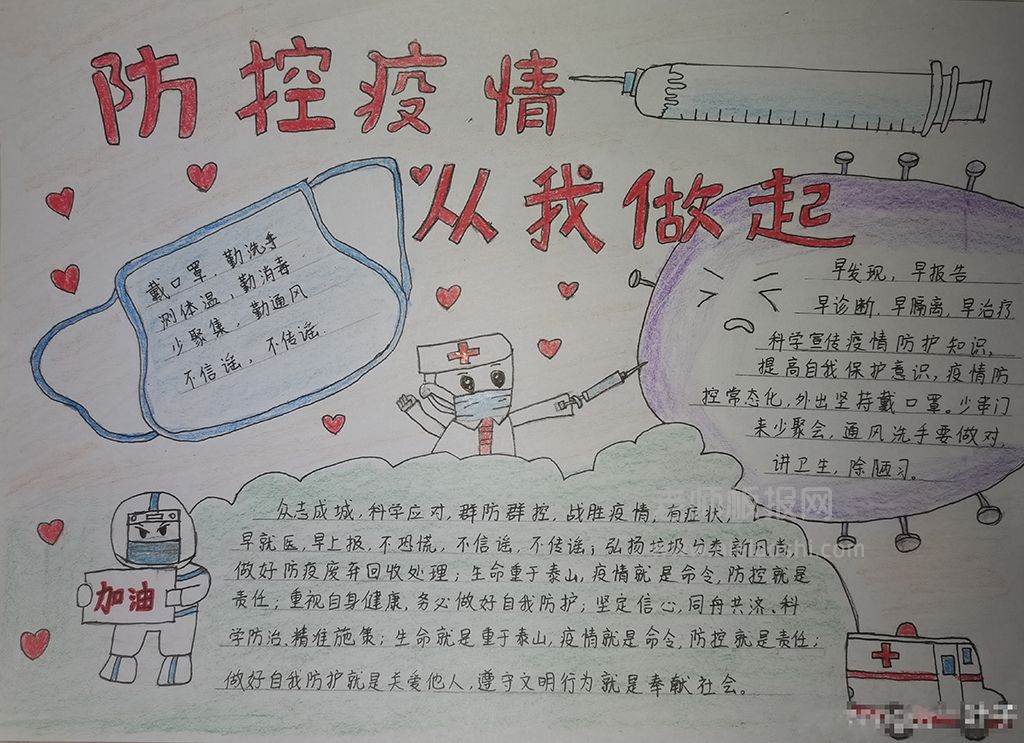 防控疫情
从我做起
戴口罩，勤洗手
测体温，勤消毒
少聚集，勤通风
不信谣，不传谣
早发现，早报告
早诊断，早隔离，早治疗
科学宣传疫情防护知识，
提高自我保护意识，疫情防
控常态化，外出坚持戴口罩。少串门
来少聚会，通风洗手要做对，
讲卫生，除陋习。
众志成城，科学应对，群防群控，战胜疫情，有症状，
早就医，早上报，不恐慌，不信谣，不传谣；弘扬垃圾分类新风尚
做好防疫废弃回收处理；生命重于泰山，疫情就是命令，防控就是
责任；重视自身健康，务必做好自我防护；坚定信心，同舟共济、科
学防治、精准施策；生命就是重于泰山，疫情就是命令，防控就是责任；
做好自我防护就是关爱他人，遵守文明行为就是奉献社会。
加油
老师板报网
.com
叶子